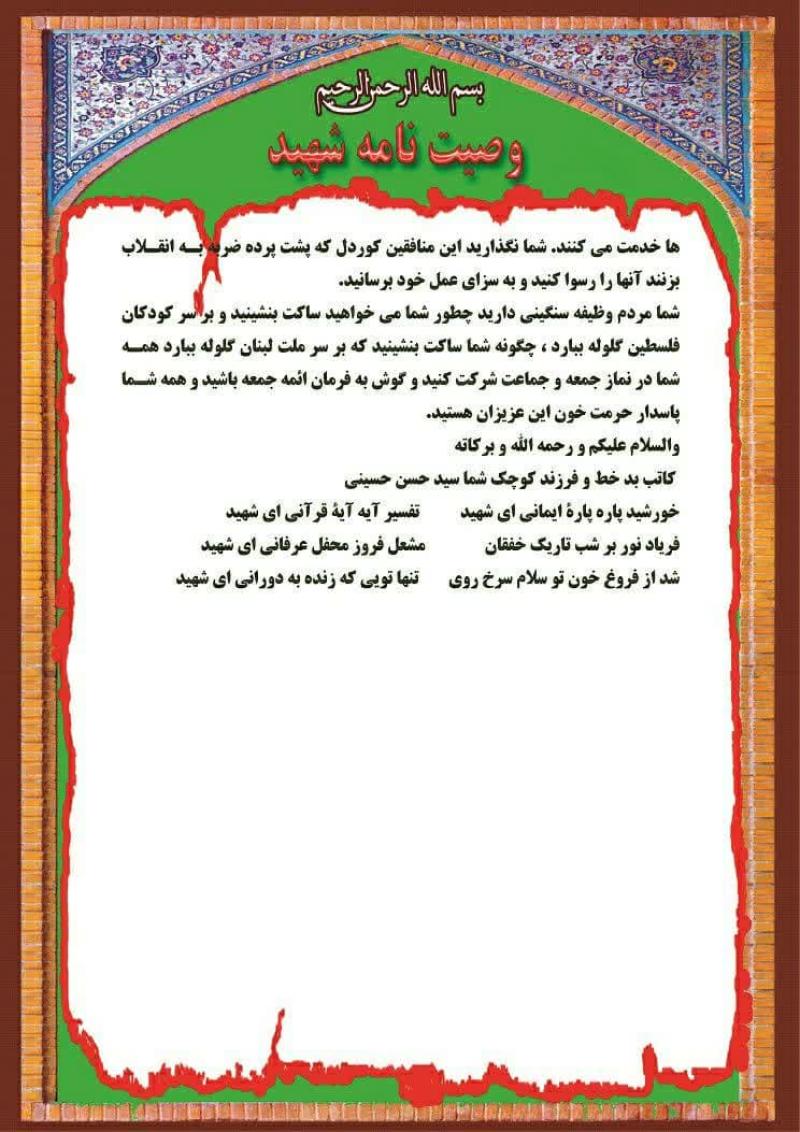 بسم الله الرحمن الرحیم
وصیت نامه شهید
ها خدمت می کنند. شما نگذارید این منافقین کوردل که پشت پرده ضربه بـه انقـلاب
بزنند آنها را رسوا کنید و به سزای عمل خود برسانید.
شما مردم وظیفه سنگینی دارید چطور شما می خواهید ساکت بنشینید و بر سر کودکان
فلسطین گلوله ببارد ، چگونه شما ساکت بنشینید که بر سر ملت لبنان گلوله ببارد همـه
شما در نماز جمعه و جماعت شرکت کنید و گوش به فرمان ائمه جمعه باشید و همه شـما
پاسدار حرمت خون این عزیزان هستید.
والسلام علیکم و رحمه الله و برکاته
کاتب بد خط و فرزند کوچک شما سید حسن حسینی
خورشید پاره پارهٔ ایمانی ای شهید تفسیر آیه آیهٔ قرآنی ای شهید
فریاد نور بر شب تاریک خفقان مشعل فروز محفل عرفانی ای شهید
شد از فروغ خون تو سلام سرخ روی تنها تویی که زنده به دورانی ای شهید